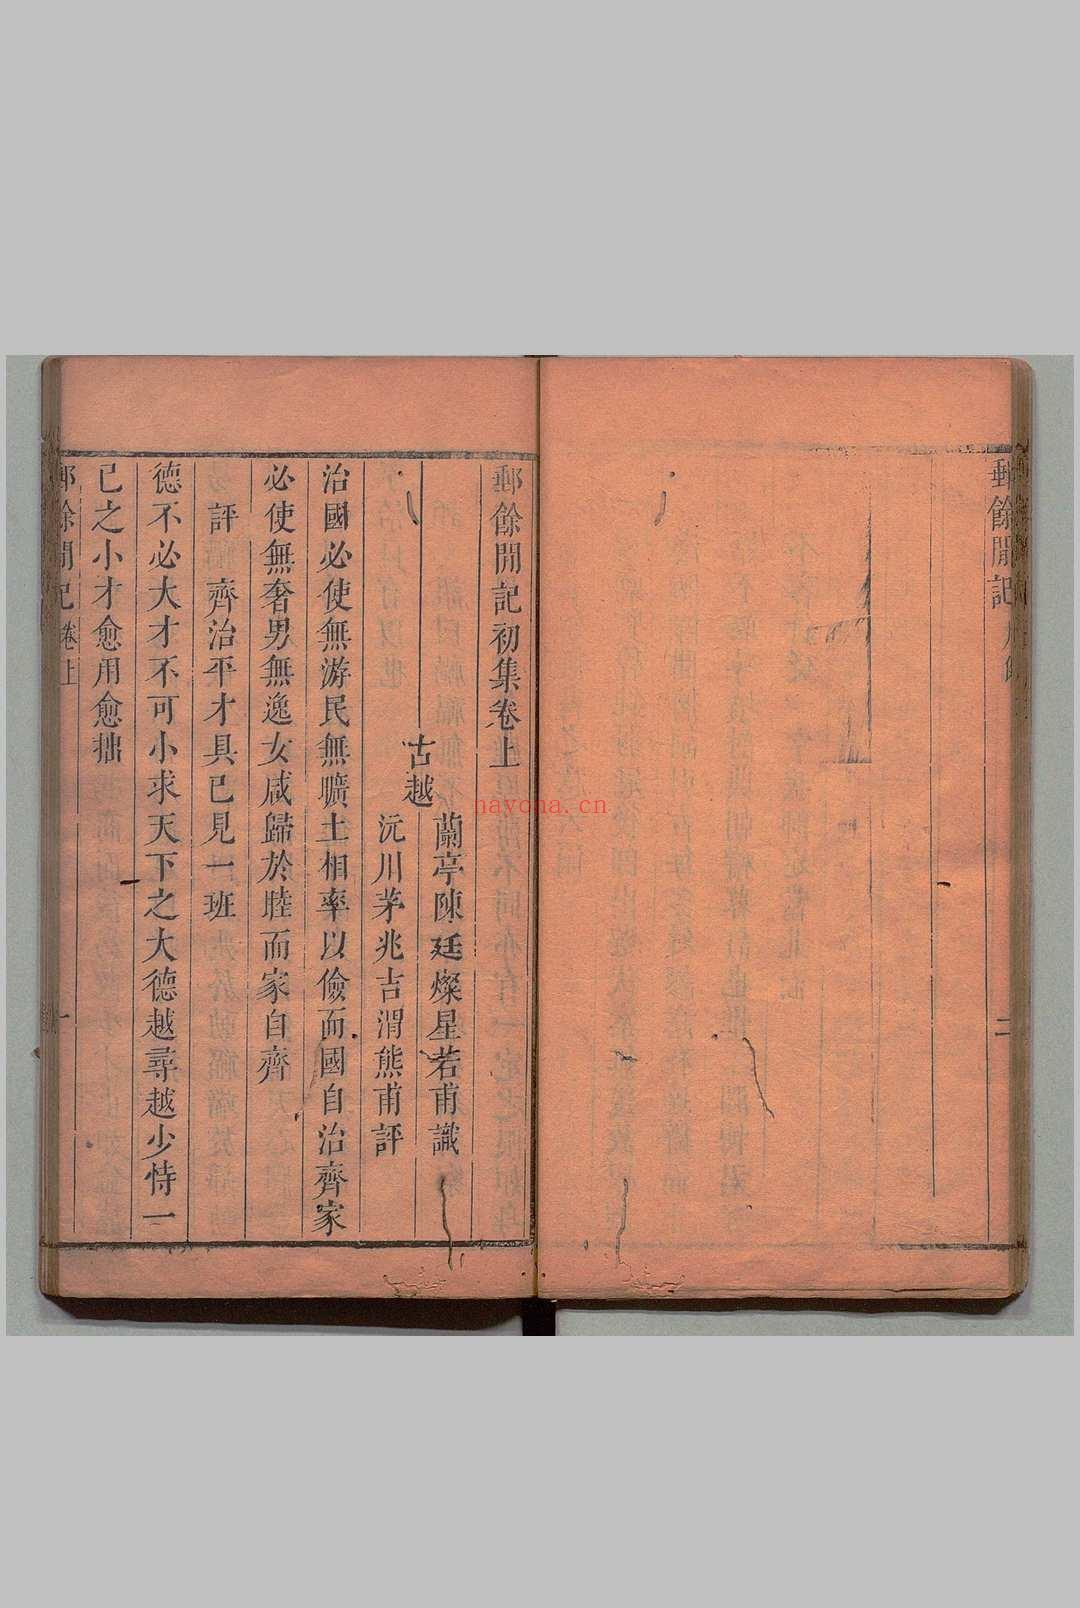 郵餘閒記
二
郵餘閒記初集卷上
古越
蘭亭陳廷燦星若甫識
沅川茅兆吉渭熊甫評
治國必使無游民無曠土相率以儉而國自治齊家
必使無奢男無逸女咸歸於睦而家自齊
評齊治平才具已見一班
德不必大才不可小求天下之大德越尋越少恃一
己之小才愈用愈拙
郵餘閒記卷上
一
nayona.cn